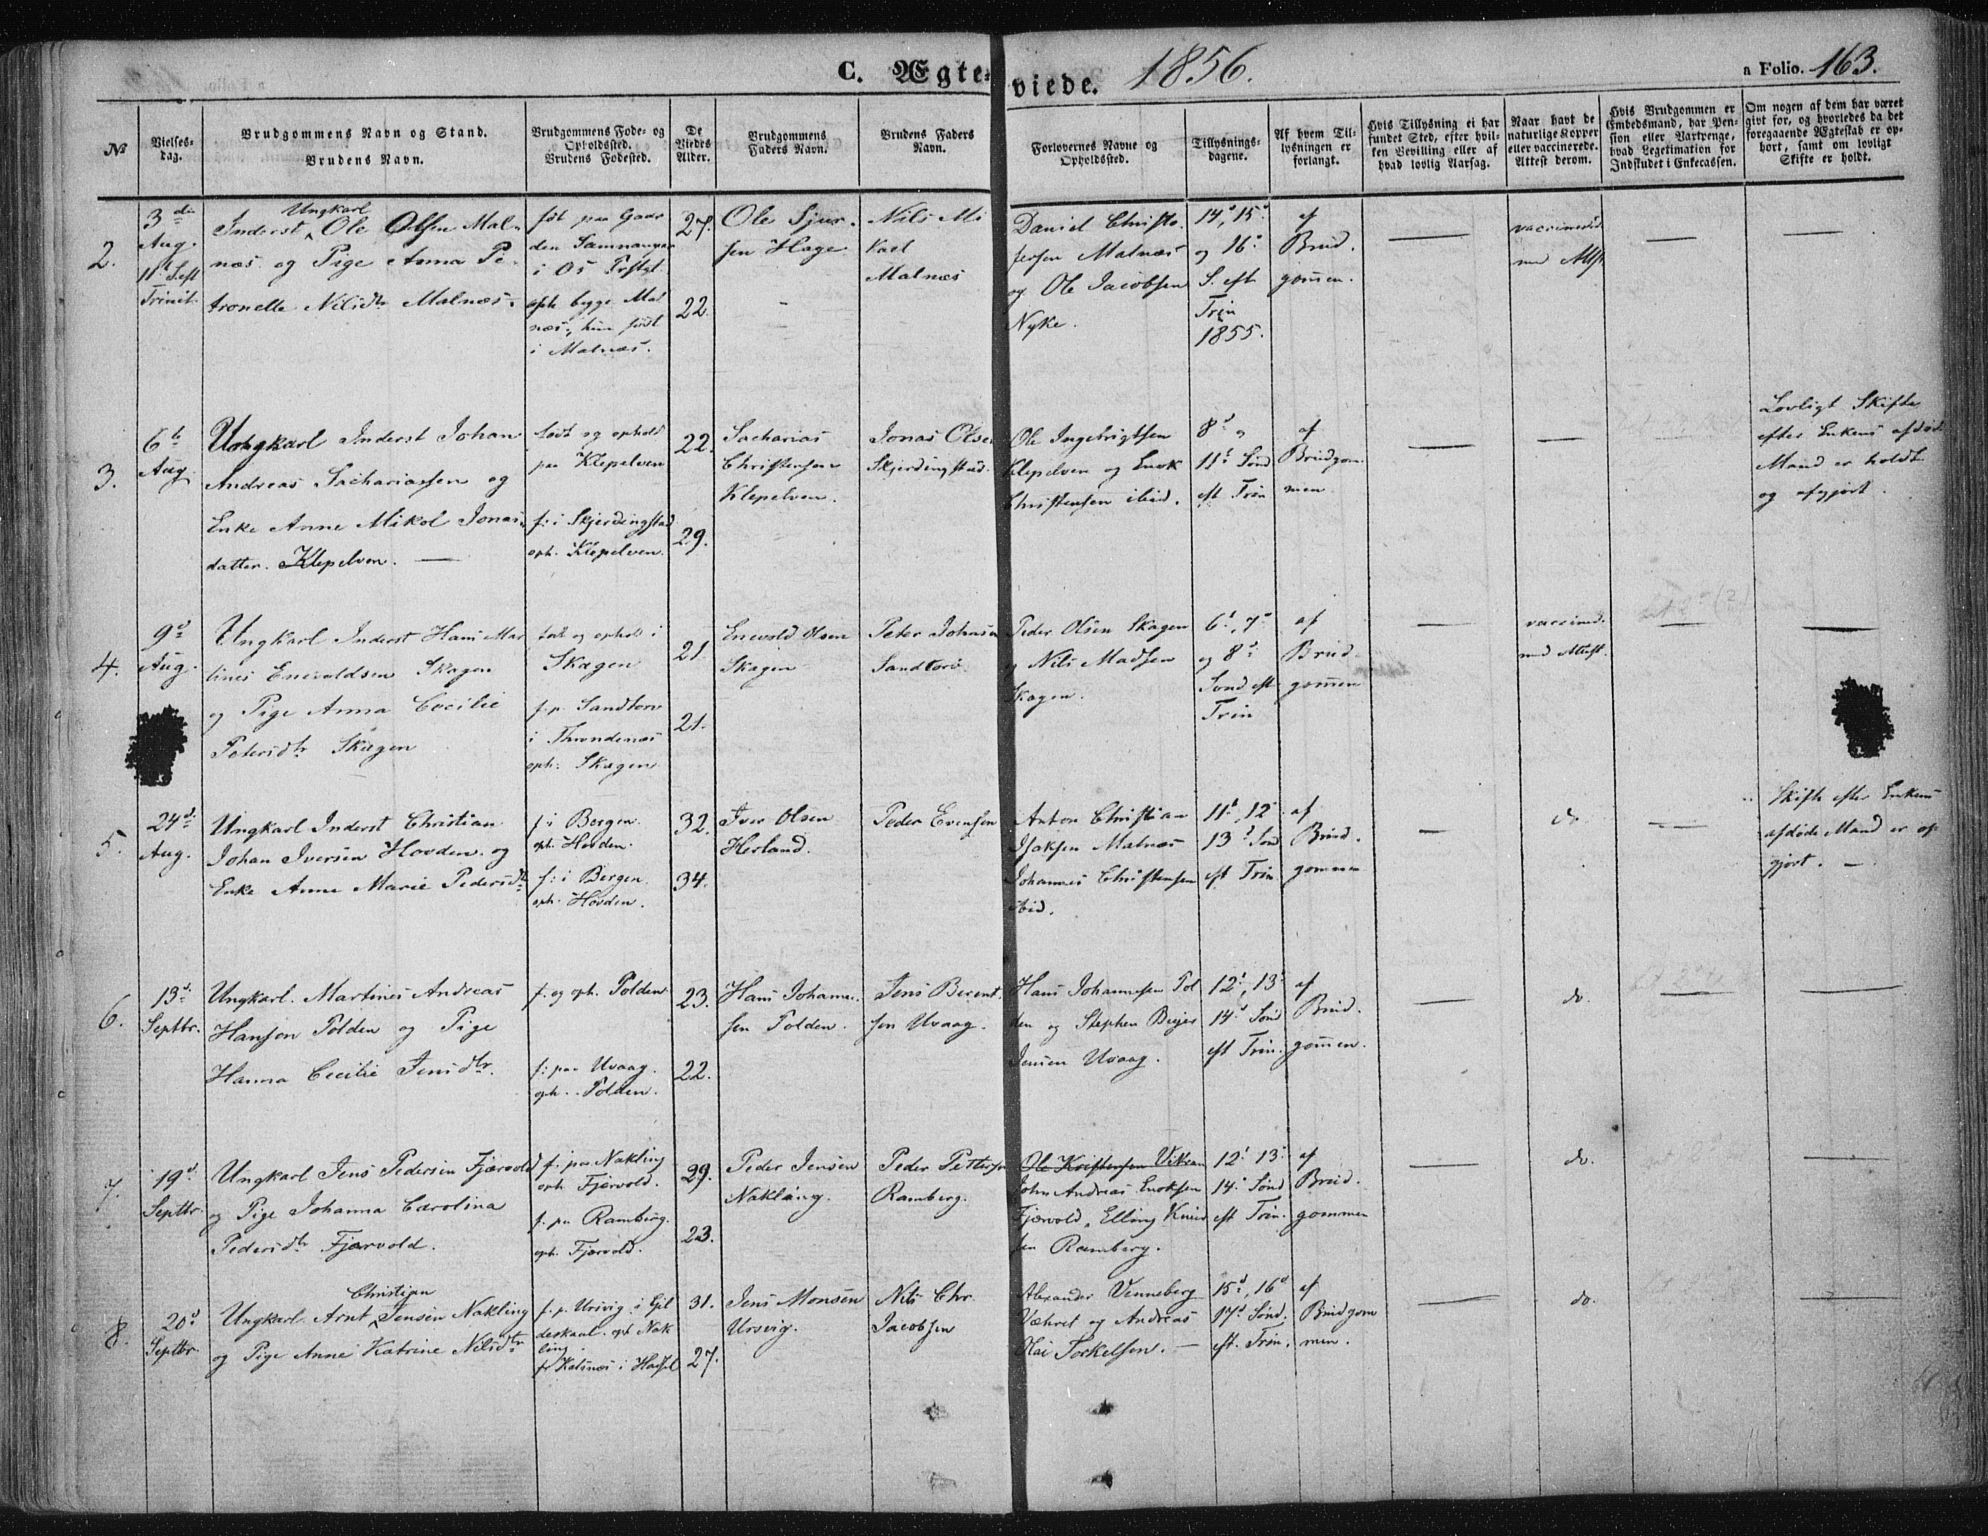 C. Ægte-
viede.
1856.
a Folio. 163.
№
Vielses-
dag.
Brudgommens Navn og Stand.
Brudens Navn.
Brudgommens Føde- og
Opholdssted.
Brudens Fødested.
De
Viedes
Alder.
Brudgommens
Faders Navn.
Brudens Faders
Navn.
Forlovernes Navne og
Opholdssted.
Tillysnings-
dagene.
Af hvem Til-
lysningen er
forlangt.
Hvis Tillysning ei har
fundet Sted, efter hvil-
ken Bevilling eller af
hvad lovlig Aarsag.
Naar havt de
naturlige Kopper
eller vaccinerede.
Attest derom.
Hvis Brudgommen er
Embedsmand, har Pen-
sion eller Vartpenge,
hvad Legetimation for
Indskudet i Enkecassen.
Om nogen af dem har været
gift før, og hvorledes da det
foregaaende Ægteskab er op-
hørt, samt om lovligt
Skifte er holdt.
2.
3die
Aug.
11te Sept
Trinit.
Ungkarl
Inderst Ole Olsen Mal-
næs og Pige Anna Pe-
tronelle Nilsdtr Malnæs.
født paa Gaar
den Samnanger
i Os Præstgt
oph. begge Mal
næs, hun født
i Malnæs.
27.
22.
Ole Sjur-
sen Hage
Nils Mi
kael
Malnæs
Daniel Christo-
fersen Malnæs
og Ole Jacobsen
Nyke.
14d, 15d
og 16d
S. eft
Trin
1855.
af
Brud-
gommen.
vaccineret
med Attst
3.
6te
Aug.
Ungkarl Inderst Johan
Andreas Sachariassen og
Enke Anne Mikol Jonas-
datter. Klepelven.
født og ophold
paa Klepelven
f: i Skjerdingstad
oph. Klepelven.
22.
29.
Sacharias
Christensen
Klepelven.
Jonas Olsen
Skjerdingstad.
Ole Ingebrigtsen
Klepelven og Enok
Christensen ibid.
8d og
11te Sønd
eft Trin
af
Brudgom-
men.
Lovligt Skifte
efter Enkens afdøde
Mand er holdt
og afgjort.
4.
9d
Aug.
Ungkarl Inderst Hans Mar
tines Enevoldsen Skagen
og Pige Anna Cecilie
Petersdtr Skagen
født og ophold i
Skagen
f. p. Sandtorv
i Throndenæs
oph. Skagen
21.
21.
Enevold Olsen
Skagen
Peter Johnsen
Sandtorv
Peder Olsen Skagen
og Nils Madsen
Skagen.
6d, 7d
og 8d
Sønd eft
Trin
af
Brud-
gommen
vaccined.
med Attest.
5.
24d
Aug.
Ungkarl Inderst Christian
Johan Iversen Hovden og
Enke Anne Marie Pedersdtr
f: i Bergen
oph. Hovden.
f: i Bergen.
oph. Hovden.
32.
34.
Iver Olsen
Herland.
Peder Evensen
Anton Christian
Isaksen Malnæs
Johannes Christensen
ibid.
11d, 12
13d Sønd
eft Trin
af
Brud-
gommen
do.
Skifte efter Enkens
afdøde Mand er op
gjort. —
6.
13d
Septbr.
Ungkarl. Martines Andreas
Hansen Tolden og Pige
Hanna Cecilie Jensdtr.
f. og oph. Tolden
f: paa Uvaag.
oph. Tolden.
23.
22.
Hans Johanne-
sen Tolden.
Jens Berent-
sen Uvaag.
Hans Johannesen Tol
den og Stephen Bejer
Jensen Uvaag.
12d, 13d
14d Sønd
eft Trin.
af
Brud-
gommen.
do.
7.
19d
Septbr.
Ungkarl Jens Pedersen Fjærvold
og Pige Johanna Carolina
Pedersdtr Fjærvold.
f: paa Nakling
oph. Fjærvold.
f: pa Ramberg.
oph. Fjærvold.
29.
23.
Peder Jensen
Nakling.
Peder Pettersen
Ramberg.
Ole Kristensen Vikran
John Andreas Enoksen
Fjærvold, Elling Knud
sen Ramberg.
12d 13d
14d Sønd
eft Trin.
af
Brud-
gommen
do.
8.
20d
Septbr.
Christian
Ungkarl Arnt Jensen Nakling
og Pige Anne Katrine Nilsdtr
f. p. Ursvig i Gil
deskaal. oph Nak
ling.
fr Kalsnæs i Hassel
31.
27.
Jens Monsen
Ursvig.
Nils Chr.
Jacobsen
Alexander Venneberg
Væhret og Andreas
Kai Torkelsen. —
15d, 16d
17d Sønd.
eft. Trin.
af
Brudgom
men.
do.